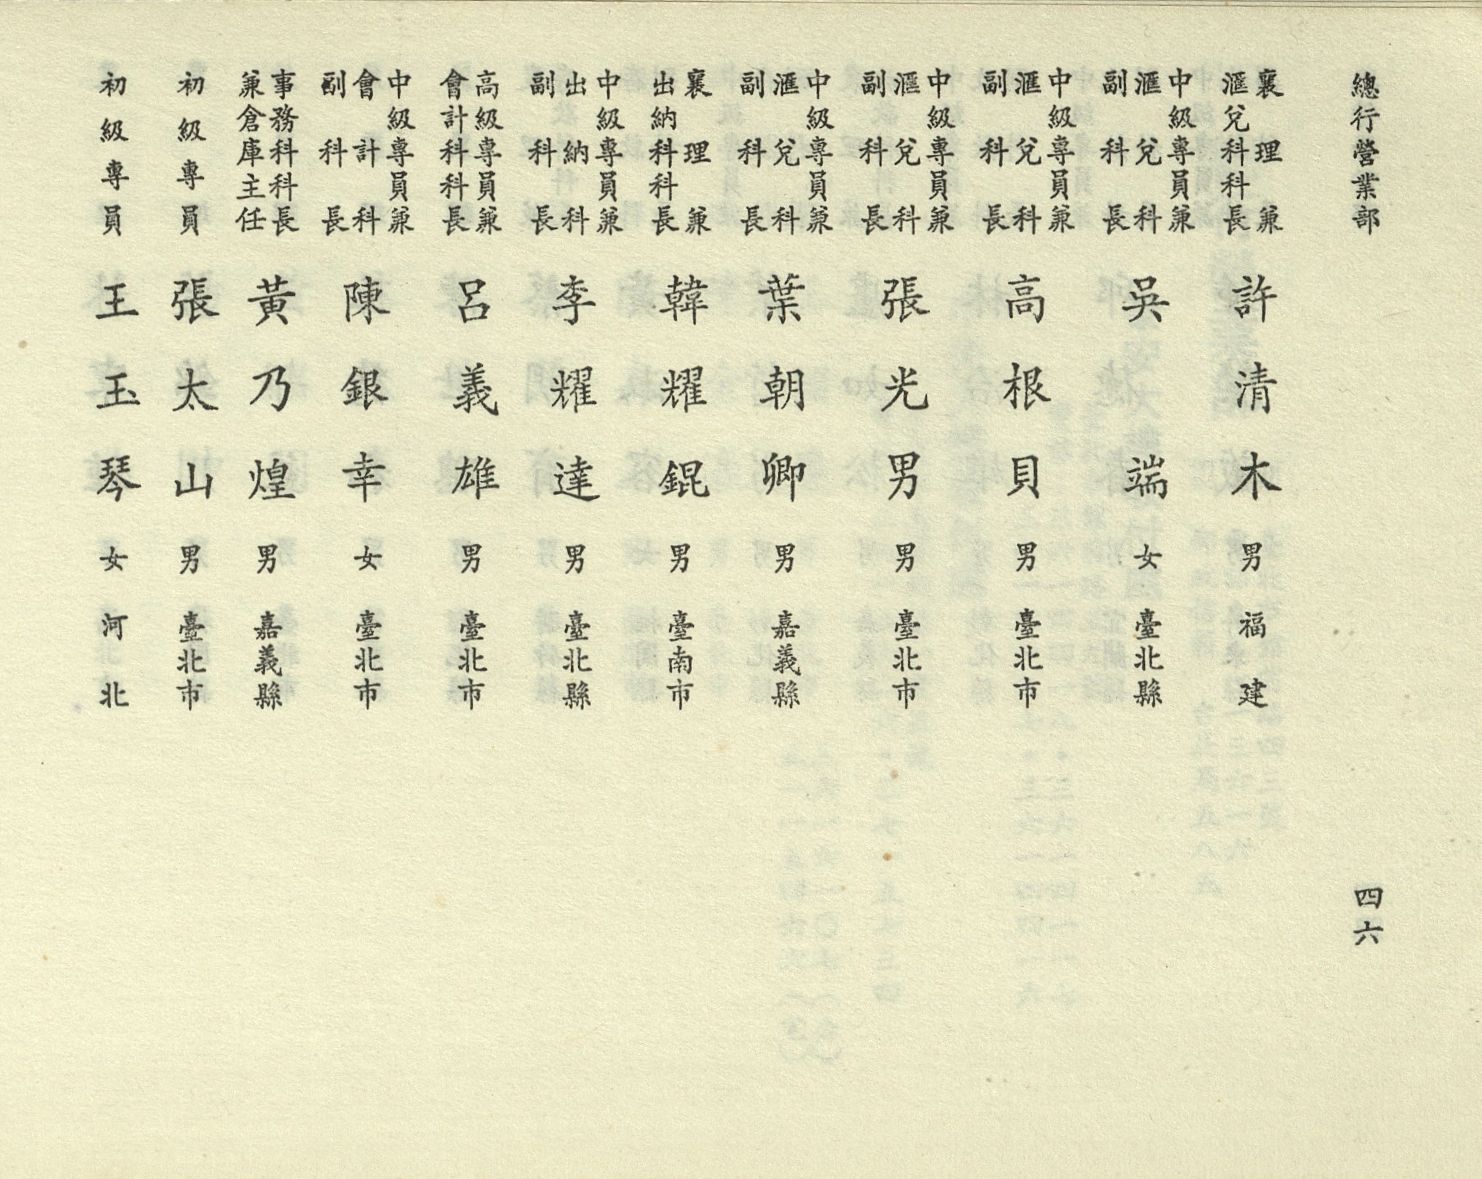 總行營業部
四六
襄理兼
滙兌科科長
許清木
男
福建
中級專員兼
滙兌科
副科長
吳端
女
臺北縣
中級專員兼
滙兌科
副科長
高根貝
男
臺北市
中級專員兼
滙兌科
副科長
張光男
男
臺北市
中級專員兼
滙兌科
副科長
葉朝卿
男
嘉義縣
襄理兼
出納科科長
韓耀錕
男
臺南市
中級專員兼
出納科
副科長
李耀達
男
臺北縣
高級專員兼
會計科科長
呂義雄
男
臺北市
中級專員兼
會計科
副科長
陳銀幸
女
臺北市
事務科科長
兼倉庫主任
黃乃煌
男
嘉義縣
初級專員
張太山
男
臺北市
初級專員
王玉琴
女
河北